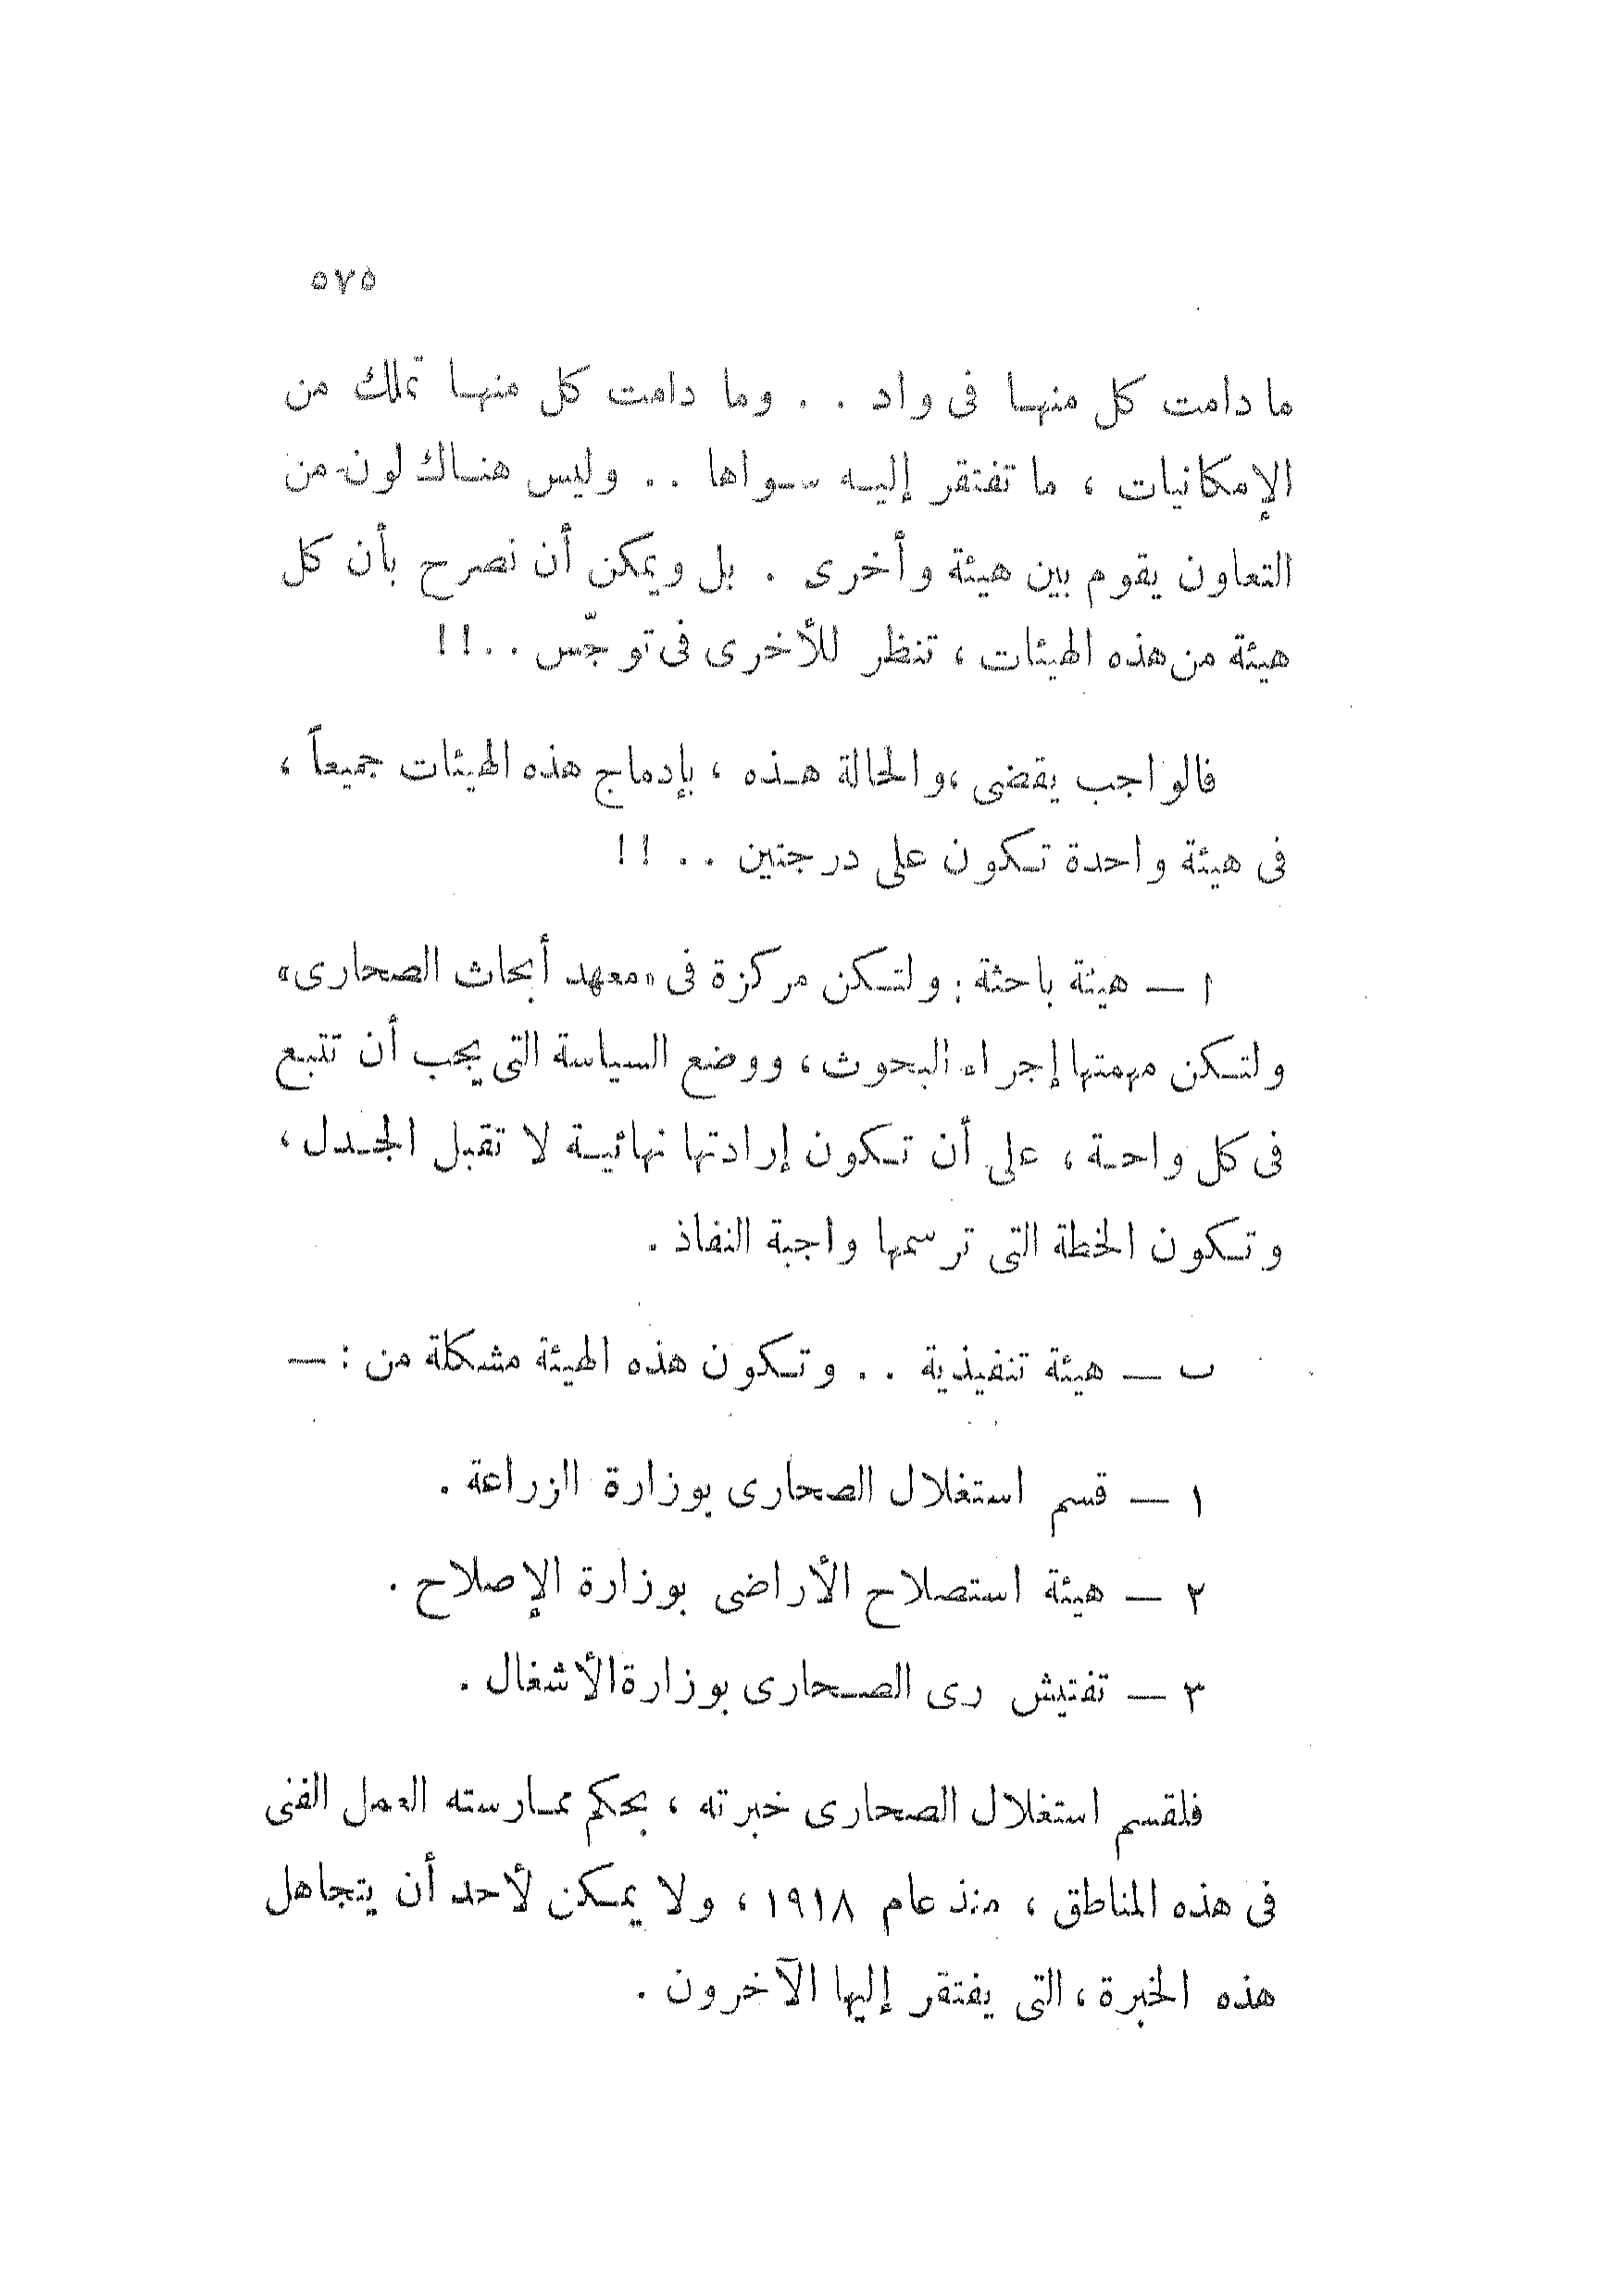 ٥٧٥
ما دامت كل منها فى واد . . وما دامت كل منها تملك من
الإمكانيات ، ما تفتقر إليه سواها . . وليس هناك لون من
التعاون يقوم بين هيئة وأخرى . بل ويمكن أن نصرح بأن كل
هيئة من هذه الهيئات ، تنظر للأخرى فى توجّس . . ! !
فالواجب يقضى ، والحالة هذه ، بإدماج هذه الهيئات جميعاً ،
فى هيئة واحدة تكون على درجتين . . ! !
ا — هيئة باحثة : ولتكن مركزة فى «معهد أبحاث الصحارى»
ولتكن مهمتها إجراء البحوث ، ووضع السياسة التى يجب أن تتبع
فى كل واحة ، على أن تكون إرادتها نهائية لا تقبل الجدل ،
وتكون الخطة التى ترسمها واجبة النفاذ .
ب — هيئة تنفيذية . . وتكون هذه الهيئة مشكلة من : —
١ — قسم استغلال الصحارى بوزارة الزراعة .
٢ — هيئة استصلاح الأراضى بوزارة الإصلاح .
٣ — تفتيش رى الصحارى بوزارة الأشغال .
فلقسم استغلال الصحارى خبرته ، بحكم ممارسته العمل الفنى
فى هذه المناطق ، منذ عام ١٩١٨ ، ولا يمكن لأحد أن يتجاهل
هذه الخبرة ، التى يفتقر إليها الآخرون .